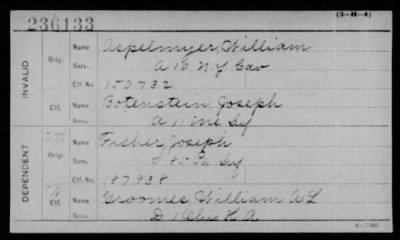 (3-H-4)
236133
INVALID
Orig.
Name Aspelmyer, William
Serv. A 16 N.Y. Cav
Ctf. No. 153732
Ctf.
Name Botenstein, Joseph
Serv. A 11 Inf
DEPENDENT
Orig.
Name Fisher, Joseph
Serv. I 85 Pa Inf
Ctf. No. 187938
Ctf.
Name Groomes, William A L
Serv. D H A